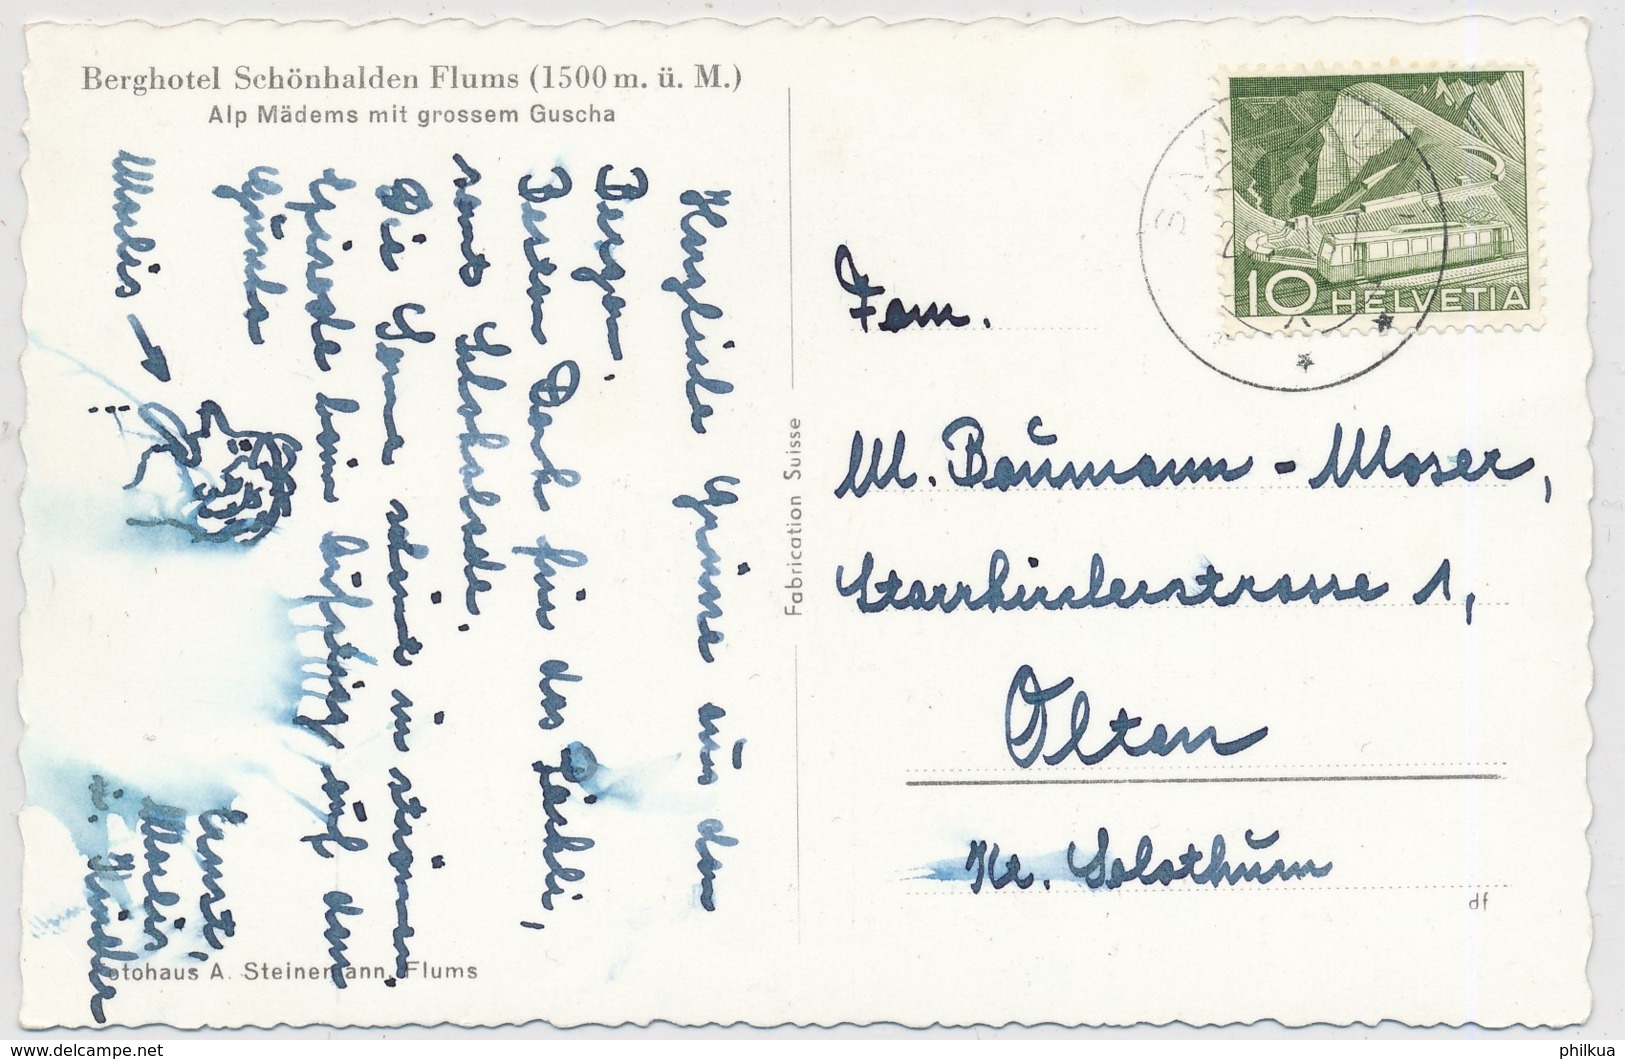 Berghotel Schönhalden Flums (1500 m. ü. M.)
Alp Mädems mit grossem Guscha
Herzliche Grüsse aus den
Bergen.
Besten Dank für das Päckli,
samt Schokolade.
Die Sonne scheint in strömen.
Gerade beim auf dem
Marlis →
Ernst
Marlis,
u. Kinder
Fotohaus A. Steinemann, Flums
Fabrication Suisse
10 HELVETIA
Fam.
M. Baumann-Moser,
Starrkircherstrasse 1,
Olten
Kt. Solothurn
df
www.delcampe.net
philkua